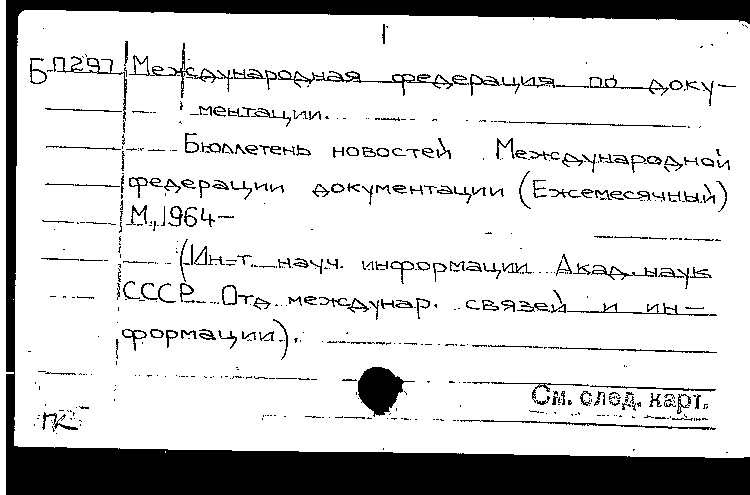 Б П297 Международная федерация по доку-
ментации.
Бюллетень новостей Международной
федерации документации (Ежемесячный)
М., 1964-
(Ин-т науч. информации Акад. наук
СССР. Отд. междунар. связей и ин-
формации).
См. след. карт.
ПК